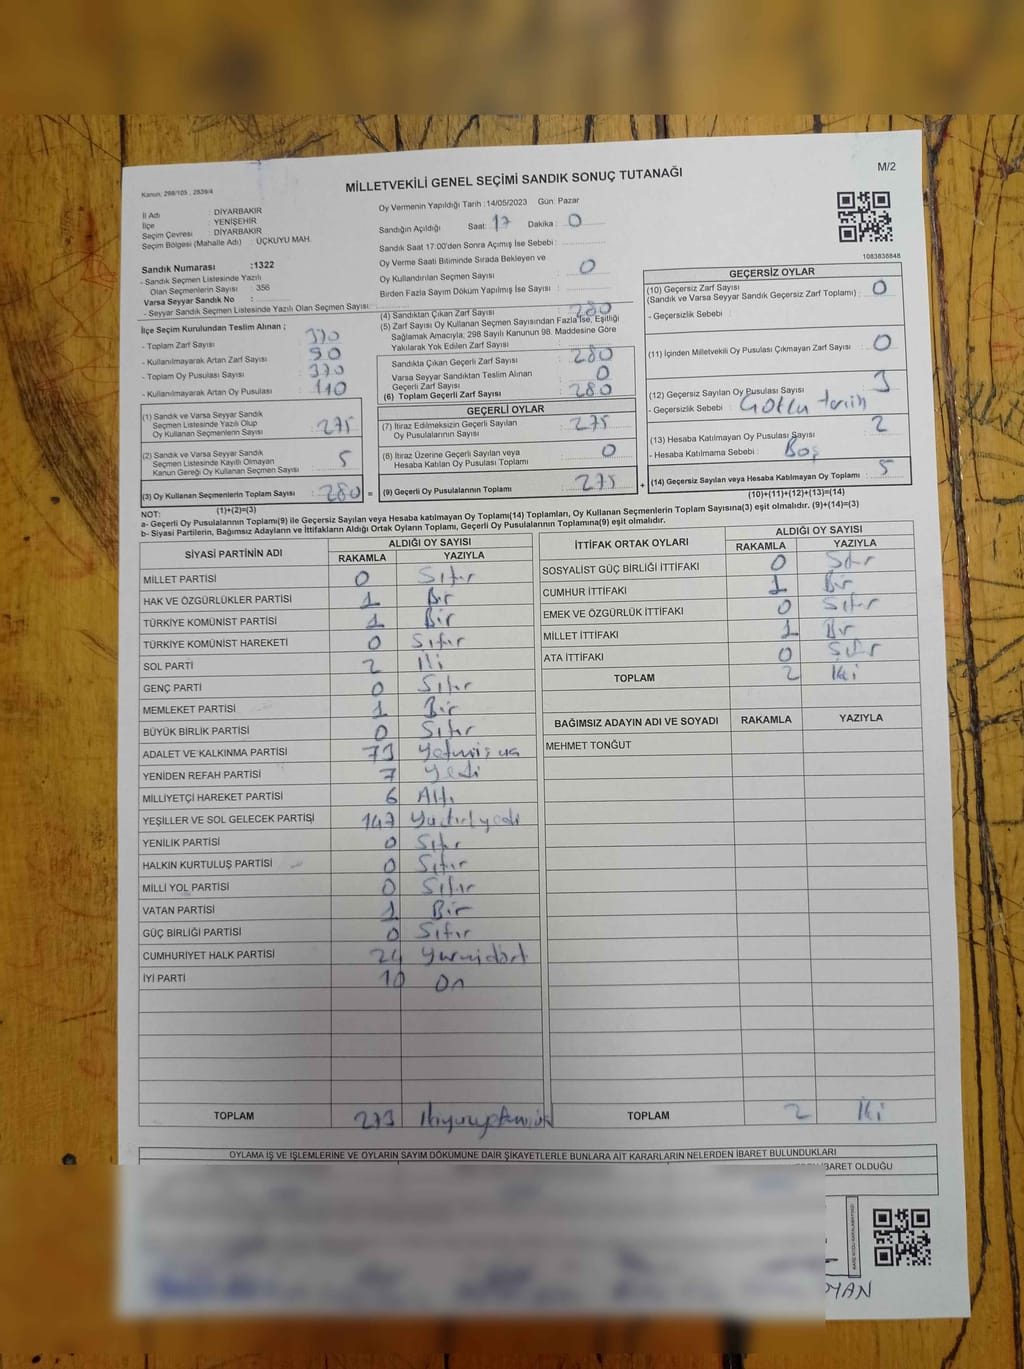 Kanun: 298/105, 2839/4
MİLLETVEKİLİ GENEL SEÇİMİ SANDIK SONUÇ TUTANAĞI
M/2
İl Adı : DİYARBAKIR
İlçe : YENİŞEHİR
Seçim Çevresi : DİYARBAKIR
Seçim Bölgesi (Mahalle Adı) ÜÇKUYU MAH.
Sandık Numarası :1322
- Sandık Seçmen Listesinde Yazılı
Olan Seçmenlerin Sayısı : 356
Varsa Seyyar Sandık No :
- Seyyar Sandık Seçmen Listesinde Yazılı Olan Seçmen Sayısı:
Oy Vermenin Yapıldığı Tarih :14/05/2023 Gün: Pazar
Sandığın Açıldığı Saat: 17 Dakika: 0
Sandık Saat 17:00'den Sonra Açımış İse Sebebi:
Oy Verme Saati Bitiminde Sırada Bekleyen ve
Oy Kullandırılan Seçmen Sayısı : 0
Birden Fazla Sayım Döküm Yapılmış İse Sayısı :
1083838848
İlçe Seçim Kurulundan Teslim Alınan ;
- Toplam Zarf Sayısı : 370
- Kullanılmayarak Artan Zarf Sayısı : 90
- Toplam Oy Pusulası Sayısı : 370
- Kullanılmayarak Artan Oy Pusulası : 110
(1) Sandık ve Varsa Seyyar Sandık
Seçmen Listesinde Yazılı Olup
Oy Kullanan Seçmenlerin Sayısı : 275
(2) Sandık ve Varsa Seyyar Sandık
Seçmen Listesinde Kayıtlı Olmayan
Kanun Gereği Oy Kullanan Seçmen Sayısı : 5
(3) Oy Kullanan Seçmenlerin Toplam Sayısı : 280 =
(1)+(2)=(3)
(4) Sandıktan Çıkan Zarf Sayısı : 280
(5) Zarf Sayısı Oy Kullanan Seçmen Sayısından Fazla İse, Eşitliği
Sağlamak Amacıyla, 298 Sayılı Kanunun 98. Maddesine Göre
Yakılarak Yok Edilen Zarf Sayısı :
Sandıkta Çıkan Geçerli Zarf Sayısı : 280
Varsa Seyyar Sandıktan Teslim Alınan
Geçerli Zarf Sayısı : 0
(6) Toplam Geçerli Zarf Sayısı : 280
GEÇERLİ OYLAR
(7) İtiraz Edilmeksizin Geçerli Sayılan
Oy Pusulalarının Sayısı : 275
(8) İtiraz Üzerine Geçerli Sayılan veya
Hesaba Katılan Oy Pusulası Toplamı : 0
(9) Geçerli Oy Pusulalarının Toplamı : 275 +
GEÇERSİZ OYLAR
(10) Geçersiz Zarf Sayısı
(Sandık ve Varsa Seyyar Sandık Geçersiz Zarf Toplamı) : 0
- Geçersizlik Sebebi :
(11) İçinden Milletvekili Oy Pusulası Çıkmayan Zarf Sayısı : 0
(12) Geçersiz Sayılan Oy Pusulası Sayısı : 3
- Geçersizlik Sebebi :
(13) Hesaba Katılmayan Oy Pusulası Sayısı : 2
- Hesaba Katılmama Sebebi : Boş
(14) Geçersiz Sayılan veya Hesaba Katılmayan Oy Toplamı : 5
(10)+(11)+(12)+(13)=(14)
NOT:
a- Geçerli Oy Pusulalarının Toplamı(9) ile Geçersiz Sayılan veya Hesaba katılmayan Oy Toplamı(14) Toplamları, Oy Kullanan Seçmenlerin Toplam Sayısına(3) eşit olmalıdır. (9)+(14)=(3)
b- Siyasi Partilerin, Bağımsız Adayların ve İttifakların Aldığı Ortak Oyların Toplamı, Geçerli Oy Pusulalarının Toplamına(9) eşit olmalıdır.
SİYASİ PARTİNİN ADI ALDIĞI OY SAYISI
RAKAMLA YAZIYLA
MİLLET PARTİSİ 0 Sıfır
HAK VE ÖZGÜRLÜKLER PARTİSİ 1 Bir
TÜRKİYE KOMÜNİST PARTİSİ 1 Bir
TÜRKİYE KOMÜNİST HAREKETİ 0 Sıfır
SOL PARTİ 2 İki
GENÇ PARTİ 0 Sıfır
MEMLEKET PARTİSİ 1 Bir
BÜYÜK BİRLİK PARTİSİ 0 Sıfır
ADALET VE KALKINMA PARTİSİ 73 Yetmiş üç
YENİDEN REFAH PARTİSİ 7 Yedi
MİLLİYETÇİ HAREKET PARTİSİ 6 Altı
YEŞİLLER VE SOL GELECEK PARTİSİ 147
YENİLİK PARTİSİ 0 Sıfır
HALKIN KURTULUŞ PARTİSİ 0 Sıfır
MİLLİ YOL PARTİSİ 0 Sıfır
VATAN PARTİSİ 1 Bir
GÜÇ BİRLİĞİ PARTİSİ 0 Sıfır
CUMHURİYET HALK PARTİSİ 24 Yirmidört
İYİ PARTİ 10 On
TOPLAM 273
İTTİFAK ORTAK OYLARI ALDIĞI OY SAYISI
RAKAMLA YAZIYLA
SOSYALİST GÜÇ BİRLİĞİ İTTİFAKI 0 Sıfır
CUMHUR İTTİFAKI 1 Bir
EMEK VE ÖZGÜRLÜK İTTİFAKI 0 Sıfır
MİLLET İTTİFAKI 1 Bir
ATA İTTİFAKI 0 Sıfır
TOPLAM 2 İki
BAĞIMSIZ ADAYIN ADI VE SOYADI RAKAMLA YAZIYLA
MEHMET TONĞUT
TOPLAM 2 İki
OYLAMA İŞ VE İŞLEMLERİNE VE OYLARIN SAYIM DÖKÜMÜNE DAİR ŞİKAYETLERLE BUNLARA AİT KARARLARIN NELERDEN İBARET BULUNDUKLARI
İBARET OLDUĞU